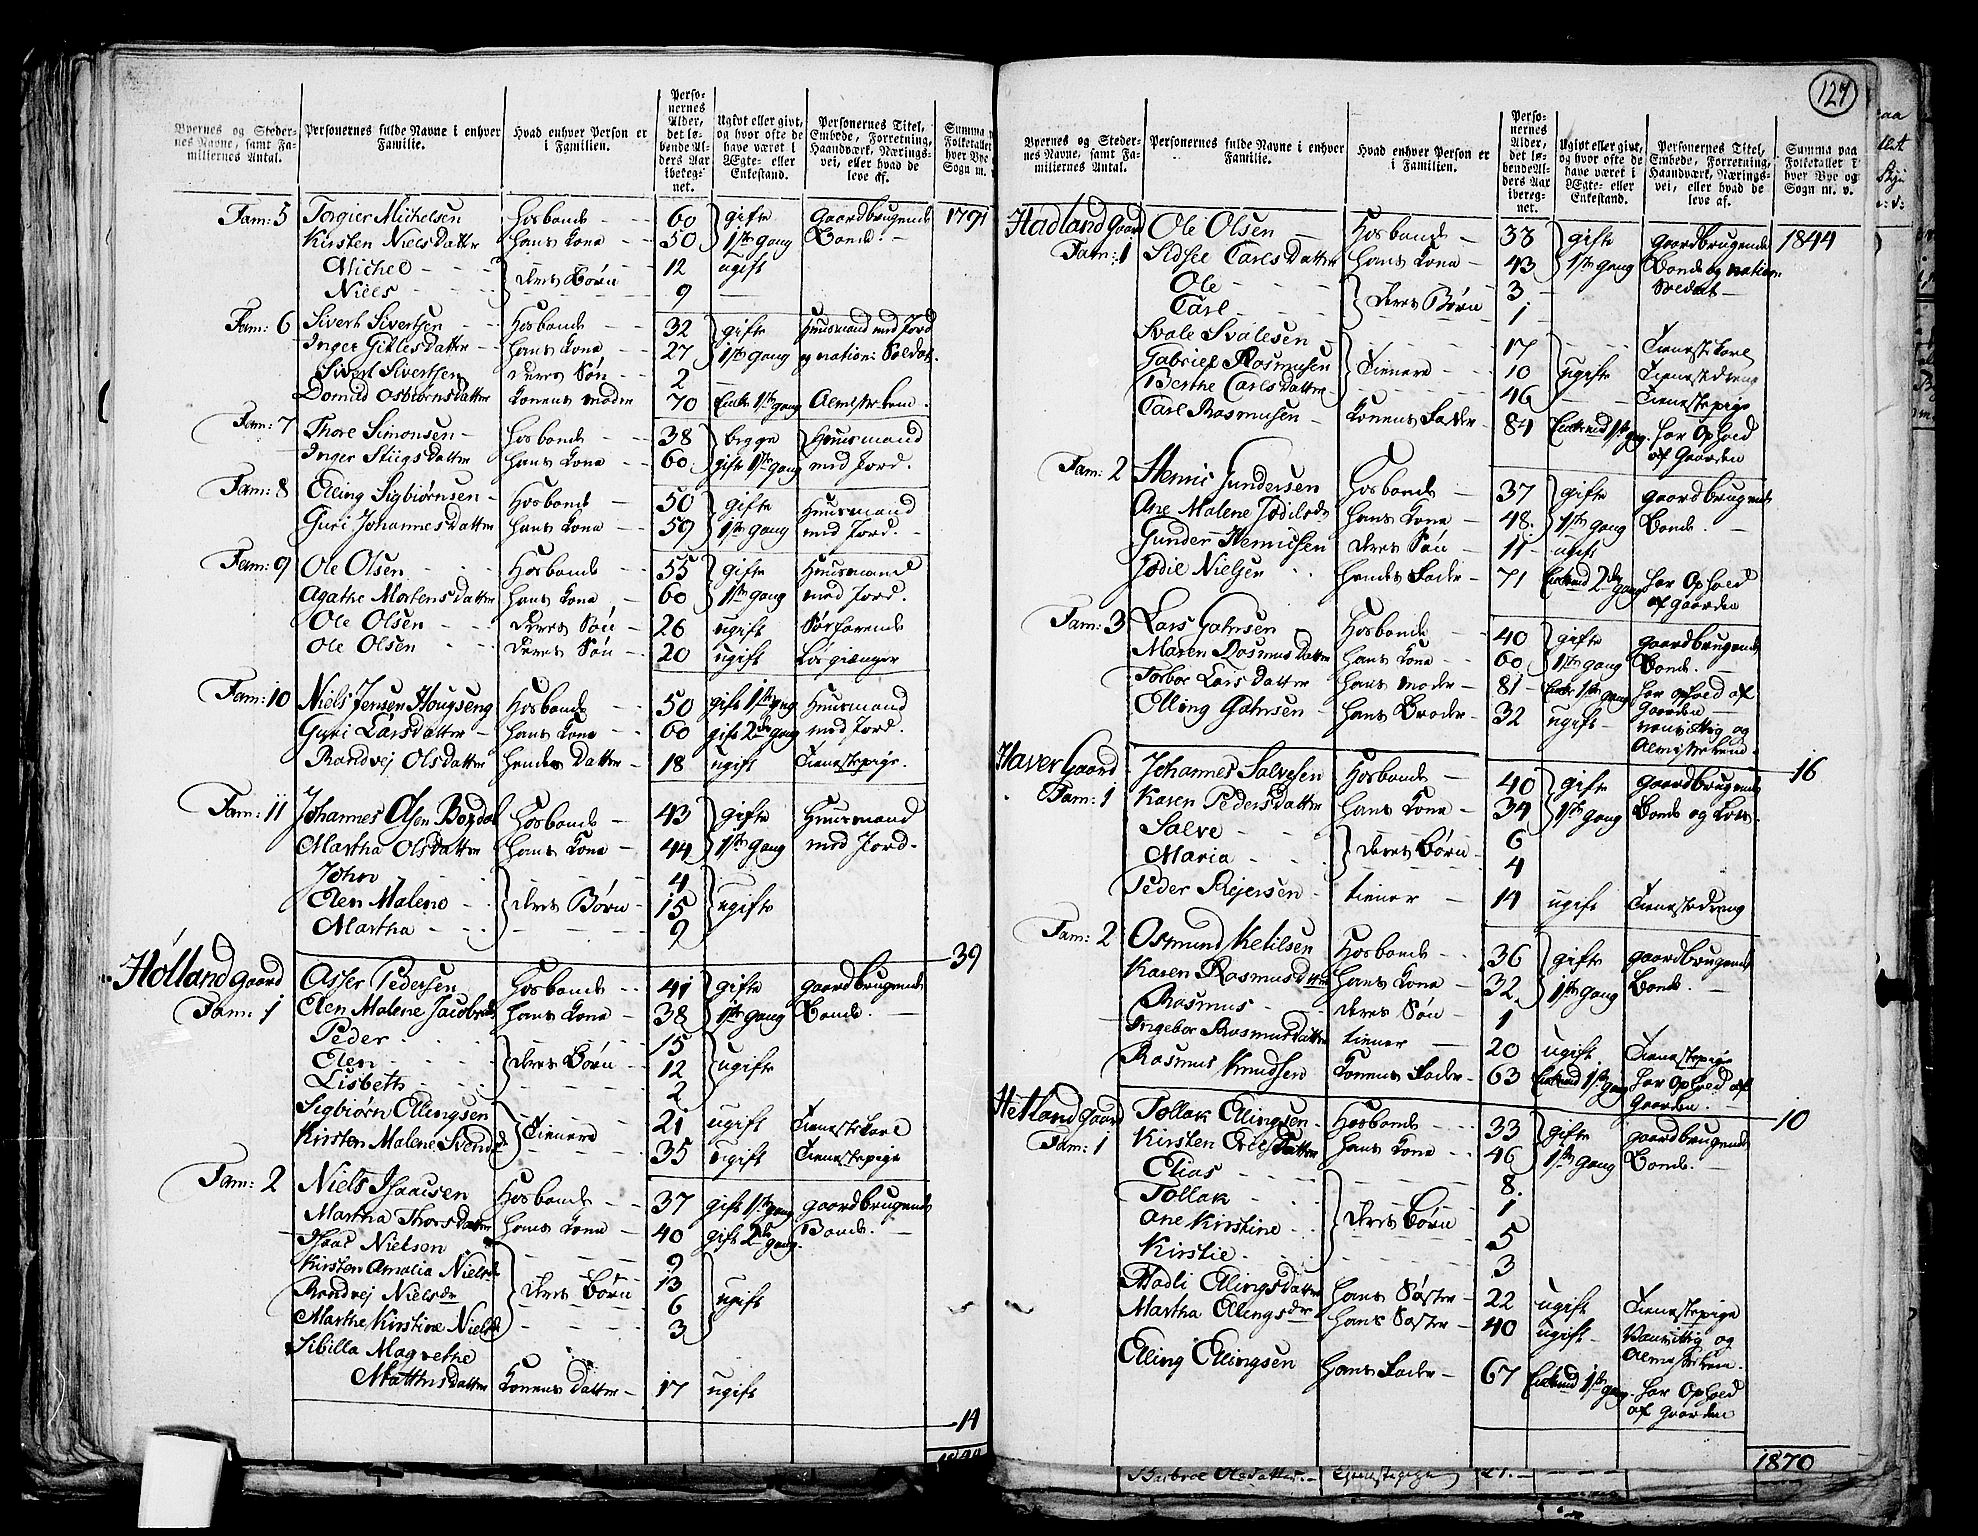 Byernes og Steder-
nes Navne, samt Fa-
miliernes Antal.
Personernes fulde Navne i enhver
Familie.
Hvad enhver Person er
i Familien.
Perso-
nernes
Alder,
det lø-
bende Al-
ders Aar
ibereg-
net.
Ugivt eller givt,
og hvor ofte de
have været i
Ægte- eller
Enkestand.
Personernes Titel,
Embede, Forretning,
Haandværk, Nærings-
vei, eller hvad de
leve af.
Summa p
Folketallet
hver Bye o
Sogn m.
Fam: 5 Torgier Michelsen Hosbonde 60 gifte Gaardbrugende 1791
Kirsten Nielsdatter hans Kone 50 1ste gang Bonde.
Michel 12 ugift
deres Børn
Niels 9
Fam: 6 Sivert Sivertsen Hosbonde 32 gifte Huusmand med Jord
Inger Gitlesdatter hans Kone 27 1ste gang og nation: Soldat
Sivert Sivertsen deres Søn 2
Osbiørnsdatter Konens moder 70 Enke 1ste gang Almisselem.
Fam: 7 Thore Simonsen Hosbonde 38 begge Huusmand
Inger Stiigsdatter hans Kone 60 gift 1ste gang med Jord.
Fam: 8 Elling Sigbiørnsen Hosbonde 50 gifte Huusmand
Guri Johannesdatter hans Kone 59 1ste gang med Jord.
Fam: 9 Ole Olsen Hosbonde 55 gifte Huusmand
Agathe Mortensdatter hans Kone 60 1ste gang med Jord.
Ole Olsen deres Søn 26 ugift Søefarende
Ole Olsen deres Søn 20 ugift Løsgiænger
Fam: 10 Niels Jensen Hougseng Hosbonde 50 gift 1ste gang Huusmand
Guri Larsdatter hans Kone 60 gift 2den gang med Jord.
Randvej Olsdatter hendes Datter 18 ugift Tienestepige.
Fam: 11 Johannes Olsen Hosbonde 43 gifte Huusmand
Martha Olsdatter hans Kone 44 1ste gang med Jord.
John 4
Elen Malene deres Børn 15 ugifte
Martha 9
39
Hólland gaard Asser Pedersen Hosbonde 41 gifte Gaardbrugende
Fam: 1 Elen Malene Jacobsdr hans Kone 38 1ste gang Bonde.
Peder 15
Elen deres Børn 12 ugifte
Lisbeth 2
Sigbiørn Ellingsen 21 ugift Tienestekarl
Tienere
Kirsten Malene Svendsdr 35 ugift Tienestepige
Fam: 2 Niels Isaacsen Hosbonde 37 gift 1ste gang Gaardbrugende
Martha Thorsdatter hans Kone 40 gift 2den gang. Bonde.
Isaac Nielsen 9
Kirsten Amalia Nielsdr 13
Randvej Nielsdr deres Børn 6 ugift
Marthe Kirstine Nielsdr 3
Sibilla Magrethe
Matthisdatter Konens datter 17 ugift
14
127
Byernes og Steder-
nes Navne, samt Fa-
miliernes Antal.
Personernes fulde Navne i enhver
Familie.
Hvad enhver Person er
i Familien.
Perso-
nernes
Alder,
det lø-
bende Al-
ders Aar
ibereg-
net.
Ugivt eller givt,
og hvor ofte de
have været i
Ægte- eller
Enkestand.
Personernes Titel,
Embede, Forretning,
Haandværk, Nærings-
vei, eller hvad de
leve af.
Summa paa
Folketallet i
hver Bye og
Sogn m. v.
Hadland Gaard Ole Olsen Hosbonde 33 gifte Gaardbrugende 1844
Fam: 1 Sidsel Carlsdatter hans Kone 43 1ste gang Bonde og nation:
Ole 3 Soldat
deres Børn
Carl 1
Svale Svalesen 17 Tienestekarl
Gabriel Rasmusen Tienere 10 ugifte Tienestedreng
Berthe Carlsdatter 46 Tienestepige
Carl Rasmusen Konens Fader 84 Enkemd 1ste gang. har Ophold
af Gaarden
Fam: 2 Hennic Gundersen Hosbonde 37 gifte Gaardbrugende
Ane Malene Jodilsdr hans Kone 48 1ste gang Bonde.
Gunder Hennicsen deres Søn 11 ugift
Jodie Nielsen hendes Fader 71 Enkemd 2den gang har Ophold
af gaarden
Fam: 3 Lars Gahrsen Hosbonde 40 gifte Gaardbrugende
Maren Rasmusdatter hans Kone 60 1ste gang Bonde.
Torbor Larsdatter hans moder 81 Enke 1ste gang har ophold af
Gaarden
Elling Gahrsen hans Broder 32 ugift vanvittig og
Almisselem.
16
Haver Gaard Johannes Salvesen Hosbonde 40 gifte Gaardbrugende
Fam: 1 Karen Pedersdatter hans Kone 34 1ste gang Bonde og Lods.
Salve 6
deres Børn
Maria 4
Peder Rejersen tiener 14 ugift Tienestedreng
Fam: 2 Osmund Ketilsen Hosbonde 36 gifte Gaardbrugende
Karen Rasmusdatter hans Kone 32 1ste gang Bonde.
Rasmus deres Søn 1
Ingebor Rasmusdatter tiener 20 ugift Tienestepige
Rasmus Knudsen Konens Fader 63 Enkemd 1ste gang har Ophold af
Gaarden.
10
Hetland Gaard Tollak Ellingsen Hosbonde 33 gifte Gaardbrugende
Fam: 1 Kirsten Ericsdatter hans Kone 46 1ste gang Bonde.
Elias 8
Tollak 1
deres Børn
Ane Kirstine 5
Kirstie 3
Madli Ellingsdatter hans Søster 22 ugift Tienestepige
Martha Ellingsdr hans Søster 40 ugift Vanvittig og
Almisselem.
Elling Ellingsen hans Fader 67 Enkemd 1ste gang. har Ophold
af Gaarden
1870